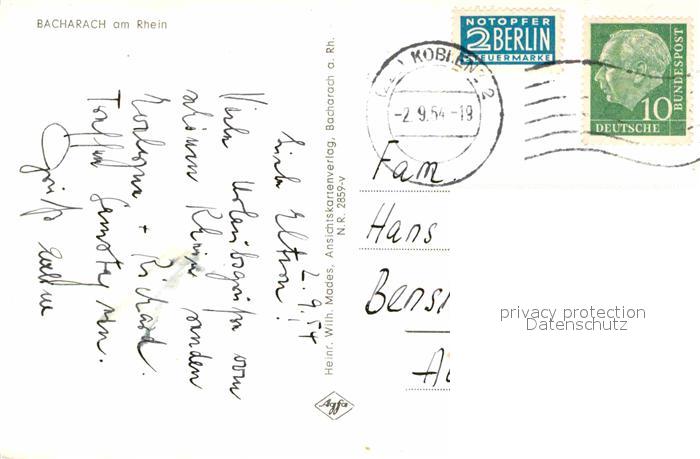 BACHARACH am Rhein
2.9.54
Liebe Eltern!
Viele Urlaubsgrüße vom
schönen Rhein senden
+ Richard.
Samstag an.
Gruß
Heinr. Wilh. Mades, Ansichtskartenverlag, Bacharach a. Rh.
N.R. 2859-v
Agfa
NOTOPFER
2 BERLIN
STEUERMARKE
KOBLENZ 2
-2.9.54-19
DEUTSCHE
BUNDESPOST
10
Fam.
Hans
privacy protection
Datenschutz